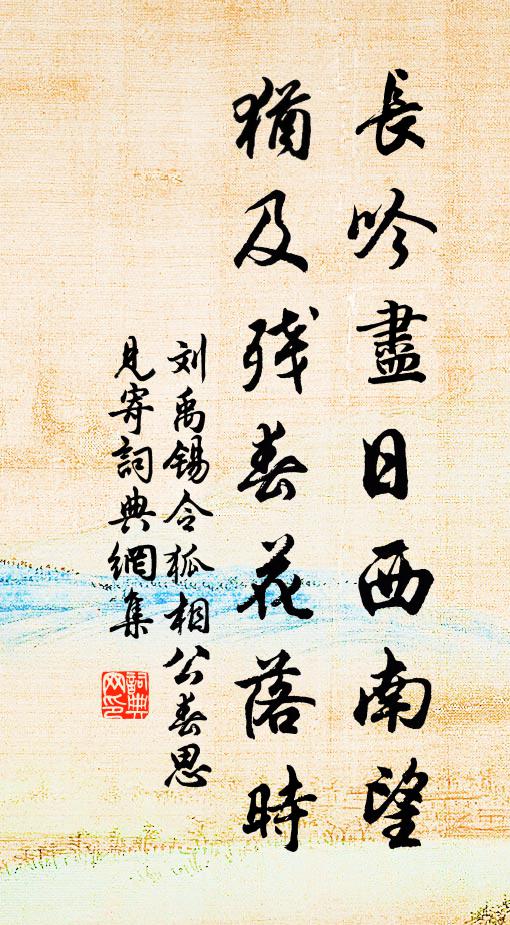 長吟盡日西南望
猶及残春花落時
刘禹锡令狐相公春思
見寄詞典網集
詞典
网印